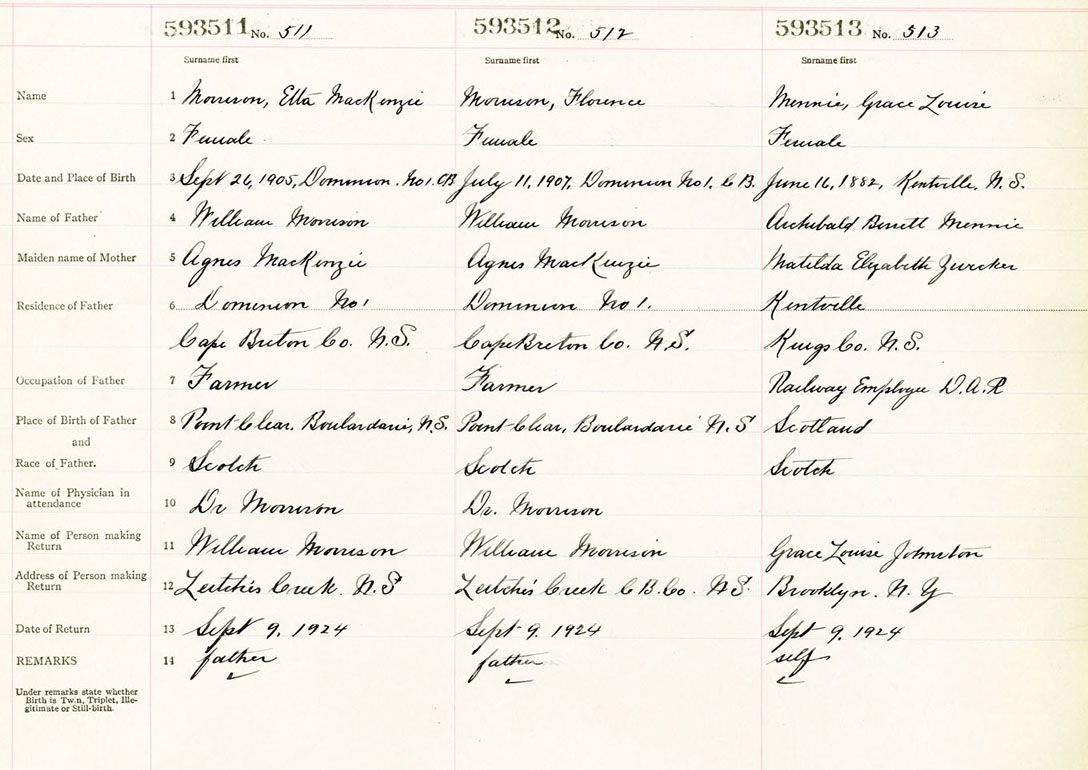 593511 No. 511 593512 No. 512 593513 No. 513
Surname first Surname first Surname first
Name 1 Morrison, Etta MacKenzie Morrison, Florence Mennie, Grace Louise
Sex 2 Female Female Female
Date and Place of Birth 3 Sept 26, 1905, Dominion. No 1. CB July 11, 1907, Dominion No 1. C B. June 16, 1882, Kentville, N. S.
Name of Father 4 William Morrison William Morrison Archibald Mennie
Maiden name of Mother 5 Agnes MacKenzie Agnes MacKenzie Matilda Elizabeth Zwicker
Residence of Father 6 Dominion No 1 Dominion No 1. Kentville
Cape Breton Co. N.S. Cape Breton Co. N.S. Kings Co. N.S.
Occupation of Father 7 Farmer Farmer Railway Employee D.A.R
Place of Birth of Father 8 Point Clear, Boulardarie, N.S. Point Clear, Boulardarie N.S Scotland
and
Race of Father. 9 Scotch Scotch Scotch
Name of Physician in
attendance 10 Dr Morrison Dr. Morrison
Name of Person making
Return 11 William Morrison William Morrison Grace Louise Johnston
Address of Person making
Return 12 Leitches Creek. N.S Leitches Creek C B. Co. N.S. Brooklyn. N. Y
Date of Return 13 Sept 9, 1924 Sept 9. 1924 Sept 9, 1924
REMARKS 14 father father self
Under remarks state whether
Birth is Twin, Triplet, Ille-
gitimate or Still-birth.